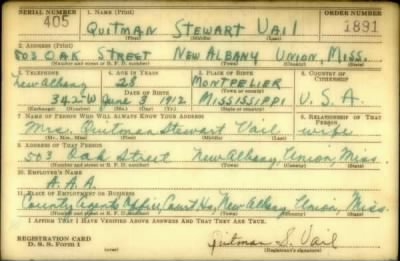 SERIAL NUMBER 1. NAME (Print) ORDER NUMBER
405 QUITMAN STEWART VAIL 1891
(First) (Middle) (Last)
2. ADDRESS (Print)
503 OAK STREET NEW ALBANY UNION, MISS.
(Number and street or R. F. D. number) (Town) (County) (State)
3. TELEPHONE 4. AGE IN YEARS 5. PLACE OF BIRTH 6. COUNTRY OF CITIZENSHIP
New Albany 28 MONTPELIER
(Town)
DATE OF BIRTH
342-W June 3 1912 MISSISSIPPI U.S.A.
(Exchange) (Number) (Mo.) (Day) (Yr.) (State or country)
7. NAME OF PERSON WHO WILL ALWAYS KNOW YOUR ADDRESS 8. RELATIONSHIP OF THAT PERSON
Mrs. Quitman Stewart Vail wife
(Mr., Mrs., Miss) (First) (Middle) (Last)
9. ADDRESS OF THAT PERSON
503 Oak Street New Albany, Union, Miss.
(Number and street or R. F. D. number) (Town) (County) (State)
10. EMPLOYER'S NAME
A.A.A.
11. PLACE OF EMPLOYMENT OR BUSINESS
County Agents Office, Court Ho, New Albany, Union, Miss.
(Number and street or R. F. D. number) (Town) (County) (State)
I AFFIRM THAT I HAVE VERIFIED ABOVE ANSWERS AND THAT THEY ARE TRUE.
REGISTRATION CARD
D. S. S. Form 1
Quitman S. Vail
(Registrant's signature)